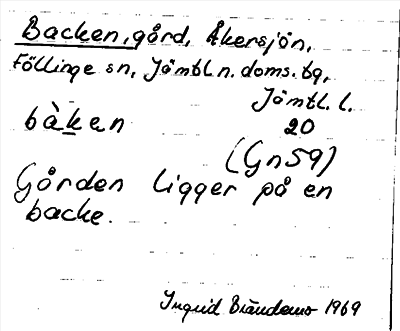 Backen, gård, Åkersjön,
Föllinge sn, Jämtl n. doms. tg,
Jämtl. l.
bàken 20
(Gn59)
Gården ligger på en
backe.
Ingrid 1969